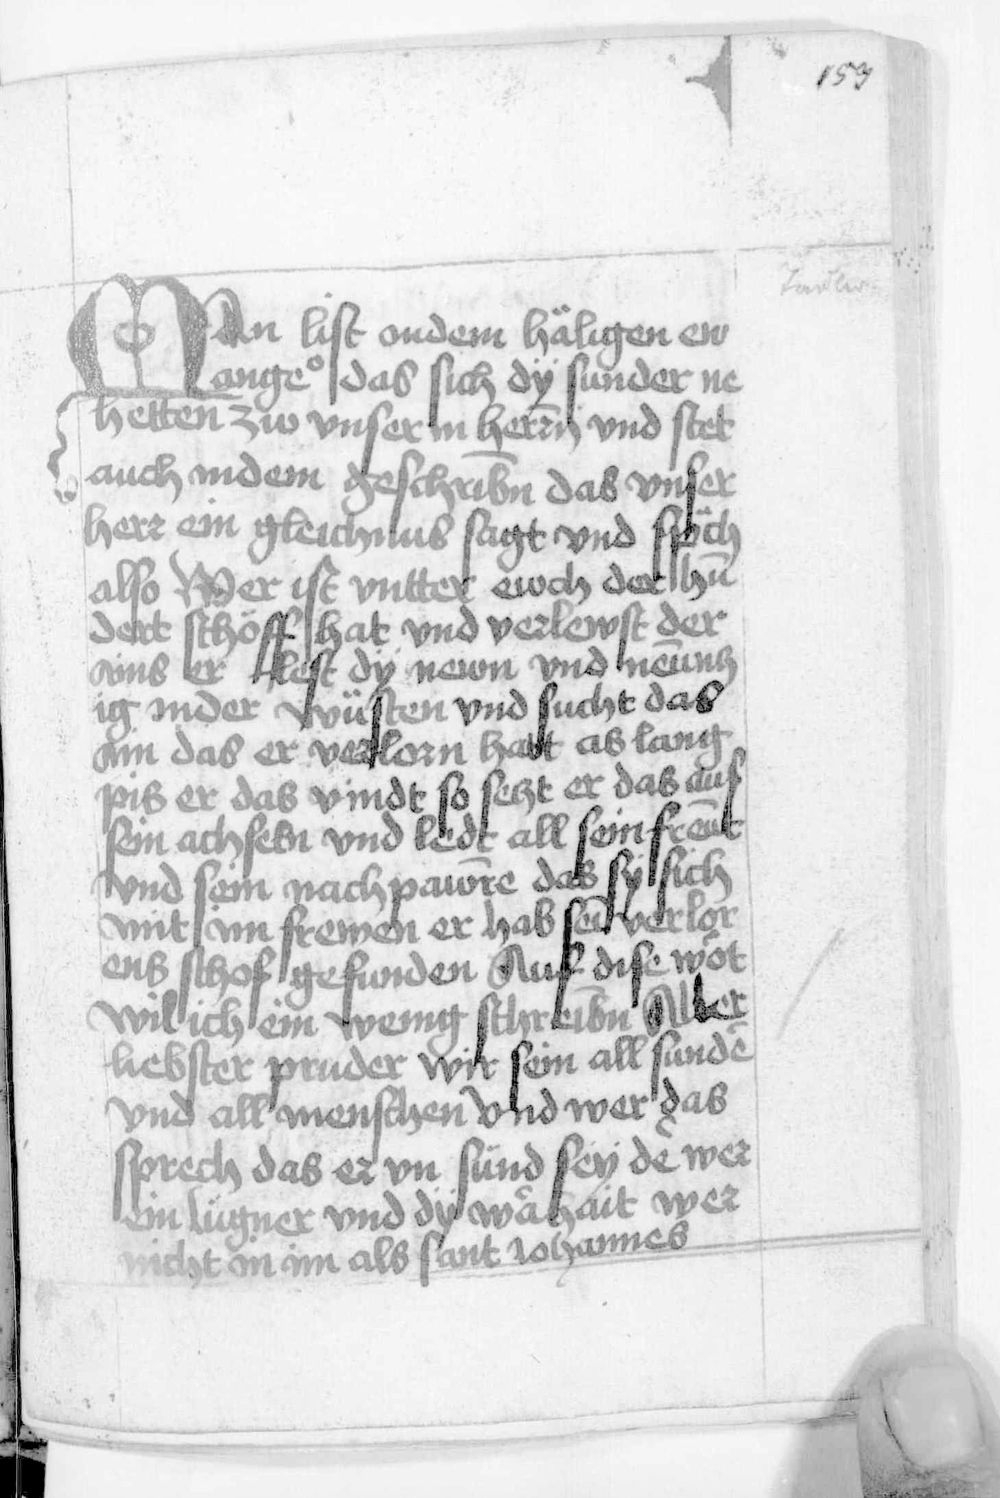 153
Tauler
Man list in dem häligen ew
angeͦ das sich dÿ sunder ne
hetten zw vnserm herrñ vnd stet
auch in dem geschribñ das vnser
herr ein gleichnus sagt vnd sp̈ch
also Wer ist vntter ewch der hū
dert schöff hat vnd verlewst der
ains er lest dÿ newn vnd neūncz
ig in der wüsten vnd sucht das
ain das er verlorn hatt as lang
pis er das vindt so seczt er das auf
sein achseln vnd ledt all sein frewͤt
vnd sein nachpawr̄e das sÿ sich
mit im frewen er hab sein verlor
ens schof gefunden Auf dise wöt
wil ich ein wenig schreibñ Aller
liebster pruder wir sein all sundē
vnd all menschen vnd wer das
sprech das er vn sünd seÿ dē wer
ein lügner vnd dÿ wåhait wer
nicht in im als sant iohannes